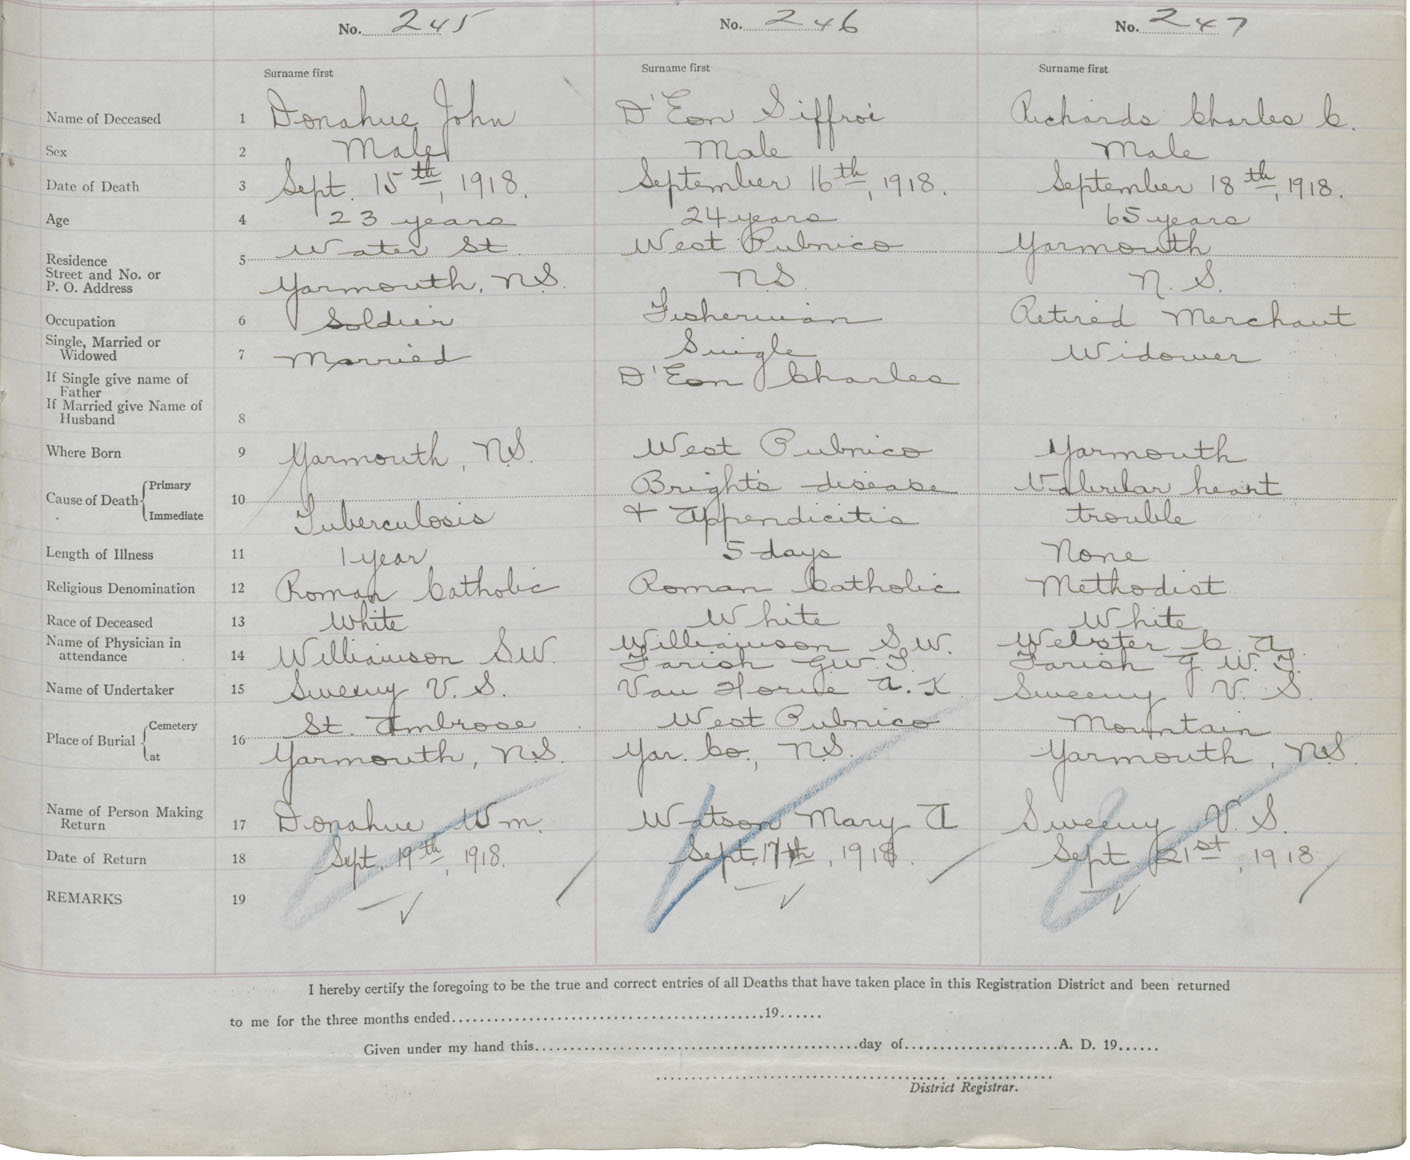 No. 245 No. 246 No. 247
Surname first Surname first Surname first
Name of Deceased 1 Donahue John D'Eon Siffroi Richards Charles C.
Sex 2 Male Male Male
Date of Death 3 Sept. 15th, 1918. September 16th, 1918. September 18th, 1918.
Age 4 23 years 24 years 65 years
Residence 5 Water St. West Pubnico Yarmouth
Street and No. or
P. O. Address Yarmouth, N.S. N.S. N. S.
Occupation 6 Soldier Fisherman Retired Merchant
Single, Married or
Widowed 7 Married Single Widower
If Single give name of D'Eon Charles
Father
If Married give Name of
Husband 8
Where Born 9 Yarmouth, N.S. West Pubnico Yarmouth
Primary Bright's disease Valvular heart
Cause of Death 10
Immediate Tuberculosis + Appendicitis trouble
Length of Illness 11 1 year 5 days None
Religious Denomination 12 Roman Catholic Roman Catholic Methodist
Race of Deceased 13 White White White
Name of Physician in Williamson S.W. Webster C. A.
attendance 14 Williamson S.W. Farish G.W.T. Farish G. W. T.
Name of Undertaker 15 Sweeny V. S. Van Horne A. K. Sweeny V. S.
Cemetery St. Ambrose West Pubnico Mountain
Place of Burial 16
at Yarmouth, N.S. Yar. Co., N.S. Yarmouth, N.S.
Name of Person Making
Return 17 Donahue Wm. Watson Mary A Sweeny V. S.
Date of Return 18 Sept. 19th, 1918. Sept. 17th, 1918. Sept. 21st, 1918
REMARKS 19
I hereby certify the foregoing to be the true and correct entries of all Deaths that have taken place in this Registration District and been returned
to me for the three months ended 19
Given under my hand this day of A. D. 19
District Registrar.